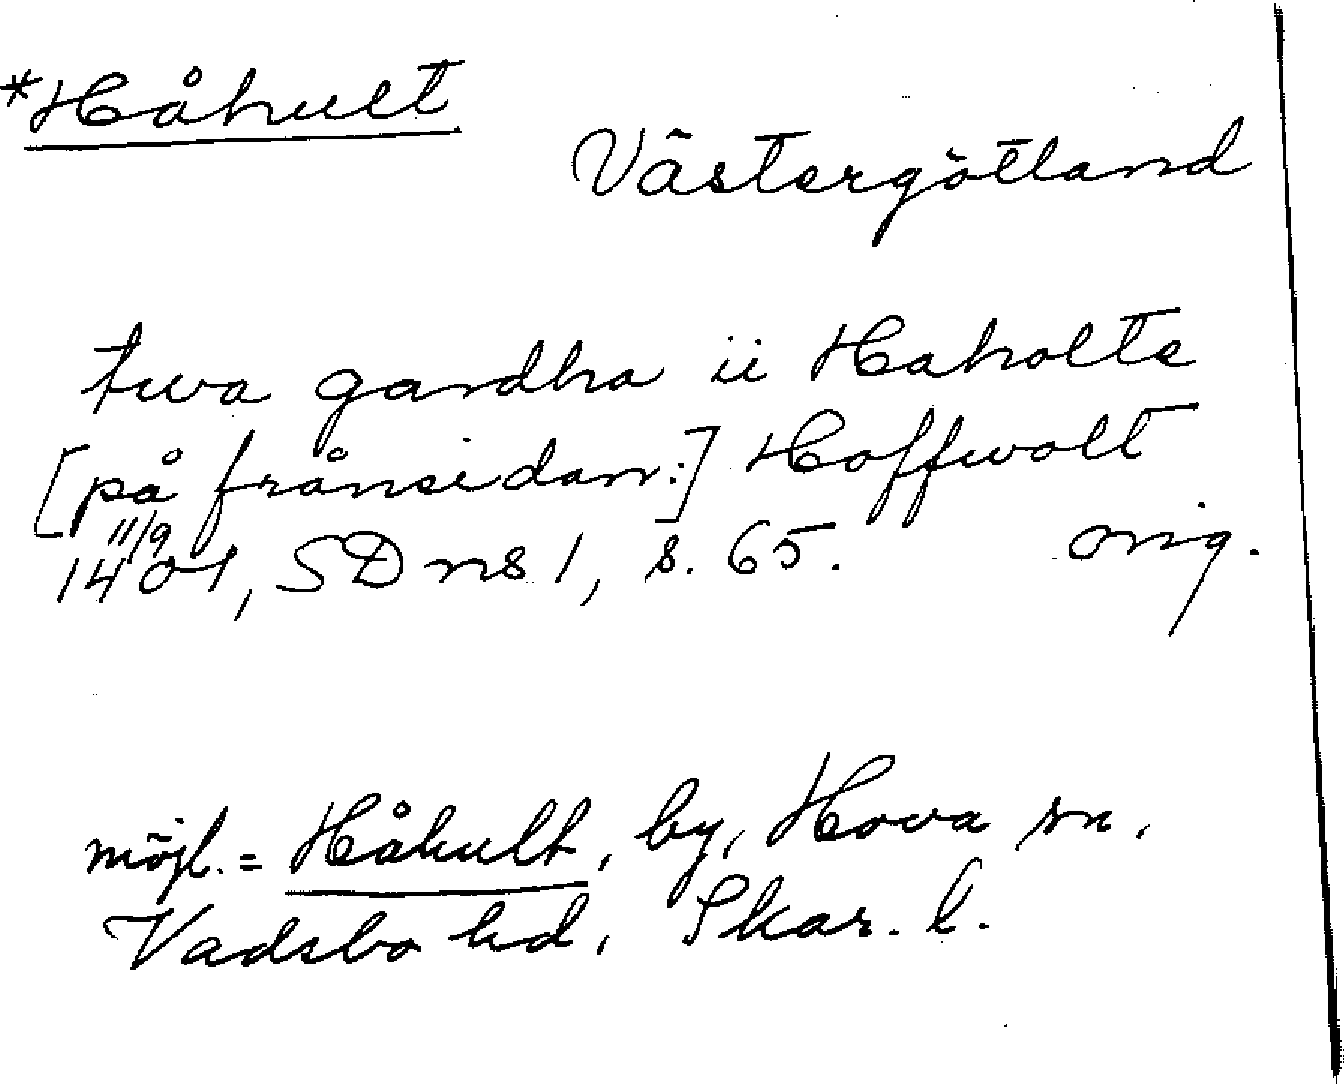 *Håhult
Västergötland
twa gardha ii Haholte
[på frånsidan:] Hoffwolt
11/9
1401, SD ns 1, s. 65. orig.
möjl. = Håhult, by, Hova sn,
Vadsbo hd, Skar. l.